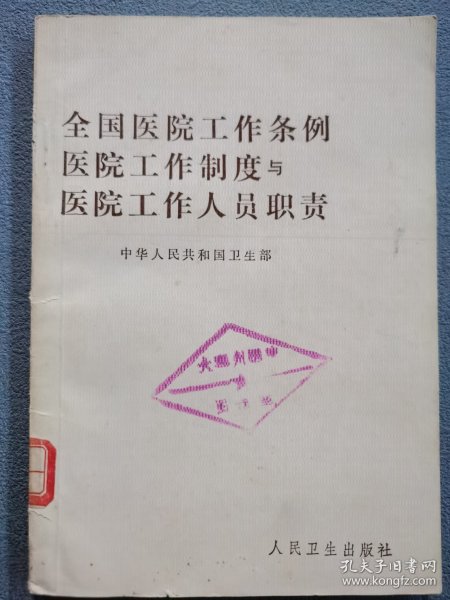 全国医院工作条例
医院工作制度与
医院工作人员职责
中华人民共和国卫生部
人民卫生出版社
孔夫子旧书网
www.kongfz.com